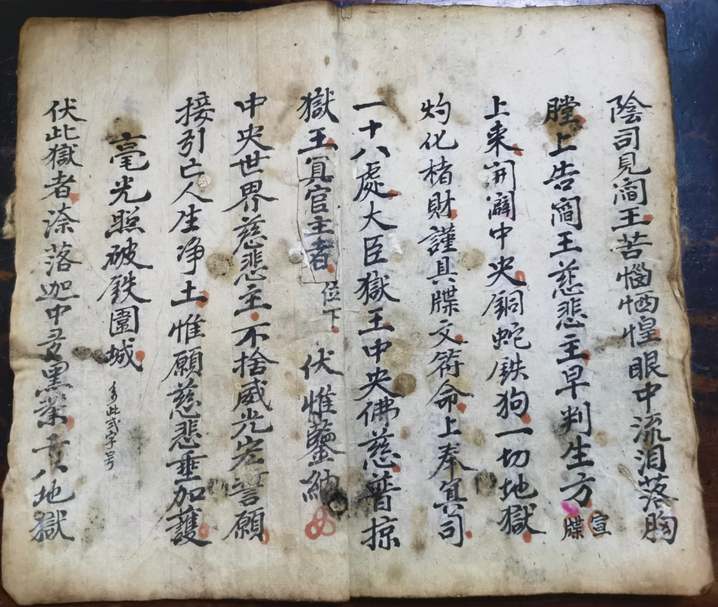 陰司見閻王苦惱恓惶眼中流泪落胸
膛上告閻王慈悲主早判生方宣牒
上来開闢中央銅蛇铁狗一切地獄
灼化楮財謹具牒文符命上奉冥司
一十八處大臣獄王中央佛慈普掠
獄王冥官主者位下 伏惟鑒納
中央世界慈悲主不捨威光宏誓願
接引亡人生净土惟願慈悲垂加護
毫光照破铁圍城
伏此獄者漆落迦中黑業十八地獄